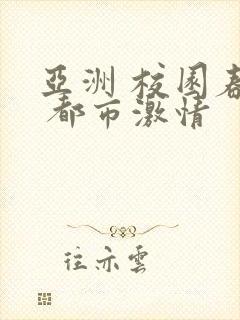 亞洲 校园春
都市激情
往亦雲